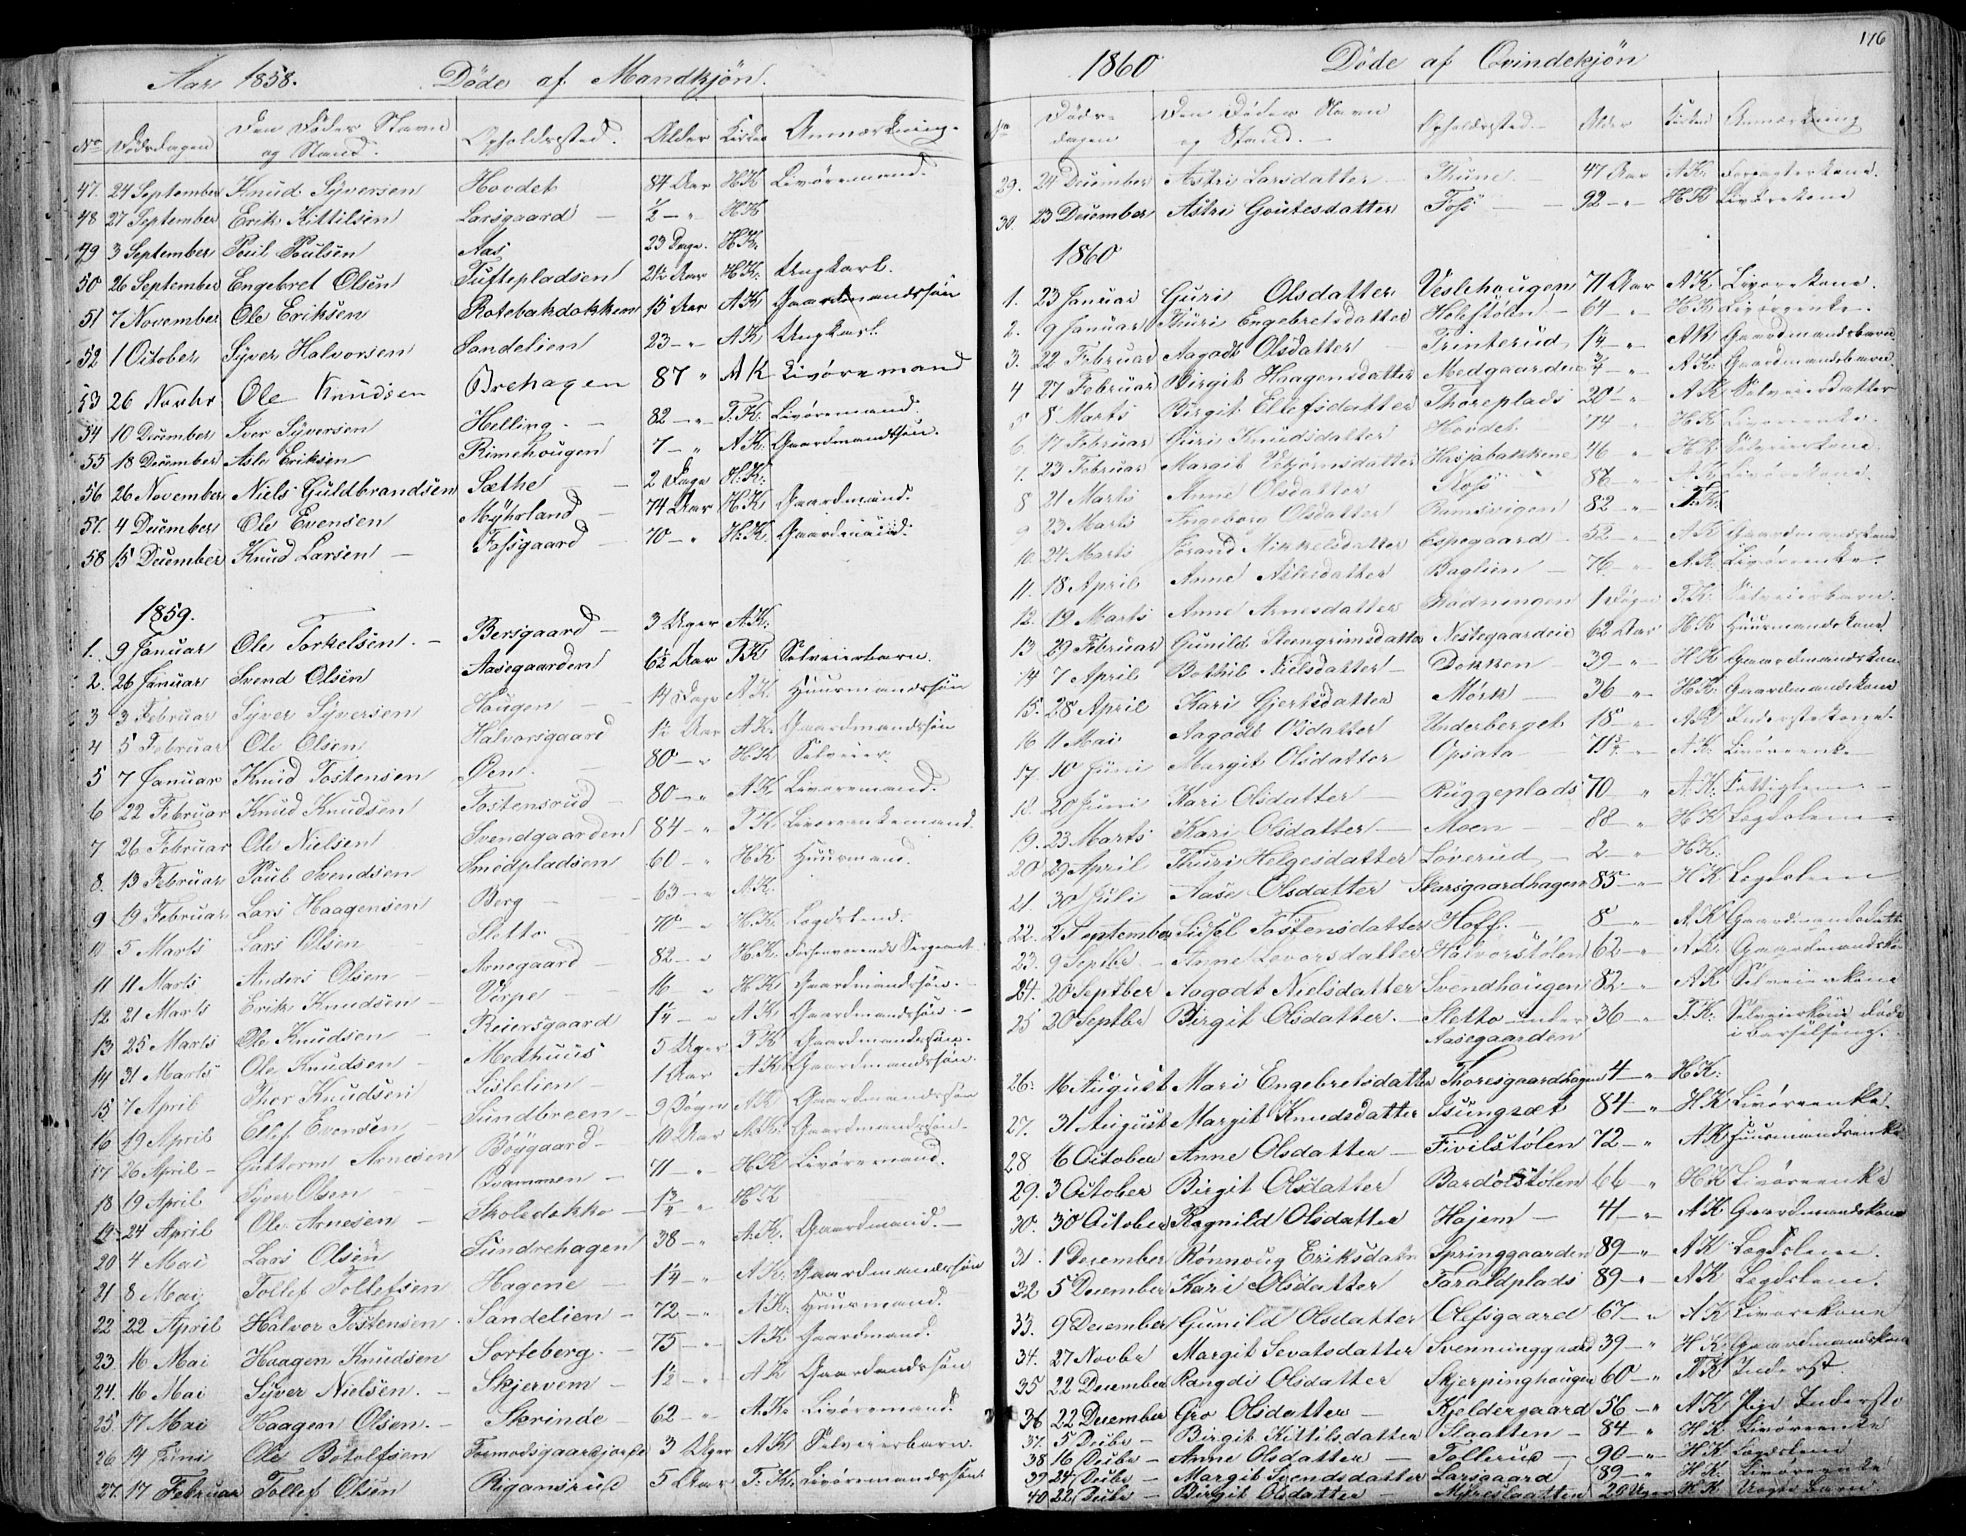 Aar 1858. Døde af Mandkjøn.
No Dødsdagen Den Dødes Navn og Stand. Opholdssted. Alder Kirke Anmærkning.
47. 24 September Knud Syversen Hovdet 84 Aar H.K Livøremand.
48 27 September Erik Kittilsen Larsgaard — ½ — „ H.K
49 3 September Poul Poulsen Aas 23 Dage. H.K.
50 26 September Engebret Olsen Tuftepladsen 21½ Aar H.K: Ungkarl.
51 7 November Ole Eriksen Rotebakdokken 15 Aar A.K Gaardmandssøn
52 1 October Syver Halvorsen Sandelien 23 — „ A.K Ungkarl.
53 26 Novbr Ole Knudsen Brehagen 87 „ A K Livøremand
54 10 December Iver Syversen Helling. — 82 — „ T.K. Livøremand.
55 18 December Asle Eriksen Rimehougen 7 — „ A.K. Gaardmandssøn.
56 26 November Niels Guldbrandsen Sæthe — 2 Dage H.K.
57. 4 December Ole Evensen Myhrland — 74 Aar H.K Gaardmand.
58 15 December Knud Larsen — Fossgaard — 70 — „ H.K Gaardmand.
1859.
1. 9 Januar Ole Torkelsen. — Bersgaard — 3 Uger A.K:
2. 26 Januar Svend Olsen Aasegaarden 6½ Aar T.K Selveierbarn.
3 3 Februar Syver Syversen Haugen — 14 Dage A.K Huusmandssøn
4 5 Februar Ole Olsen Halvorsgaard 1½ Aar A.K. Gaardmandssøn
5 7 Januar Knud Tostensen Øen. — 80 — „ H.K Selveier.
6 22 Februar Knud Knudsen Tostensrud — 80 — „ A.K Livøremand.
7 26 Februar Ole Nielsen Svendgaarden 84 — „ T.K Livøreenkemand.
8. 13 Februar Poul Svendsen Smedpladsen 60 — „ H.K Huusmand.
9 19 Februar Lars Haagensen Berg — 63 — „ A.K.
10 5 Marts Lars Olsen Sletto — 70 — „ H.K. Legdslend.
11 11 Marts Anders Olsen Arnegaard — 82 — „ H.K. Forhenværende Sergeant.
12 21 Marts Erik Knudsen — Verpe — 16 „ H.K Gaardmandssøn. —
13 25 Marts Ole Knudsen Reiersgaard 1¼ — „ A.K Gaardmandssøn. —
14 31 Marts Ole Knudsen — Medhuus 5 Uger T.K Gaardmandssøn.
15 7 April Thor Knudsen Lislelien — 1 Aar A.K Gaardmandssøn.
16 19 April Ellef Evensen Sundbreen — 9 Døgn A.K Gaardmandssøn
17 26 April — Guttorm Arnesen Bøygaard — 10 Aar A.K. Gaardmandssøn.
18 19 April Syver Olsen — 71 — „ H.K Livøremand.
19 24 April Ole Arnesen — Skoledokko — 1¾ — „ H.K
20 4 Mai Lars Olsen Sundrehagen 38 — „ A.K. Gaardmand. —
21 8 Mai Tollef Tollefsen Hagene — 1¼ — „ A.K. Gaardmandssøn
22 22 April Halvor Tostensen Sandelien — 72 — „ A.K. Huusmand.
23. 16 Mai Haagen Knudsen Sorteberg. — 75 — „ A.K Gaardmand.
24. 16 Mai Syver Nielsen. — Skjervem — 1½ — „ A.K Gaardmandssøn
25. 17 Mai Haagen Olsen. — Skrinde — 62 — „ A.K. Livøremand
26 14 Juni Ole Botolfsen 3 Uger A.K Selveierbarn.
27. 17 Februar Tollef Olsen Rigansrud 5 Aar T.K. Livøremandssøn.
1860 Døde af Qvindekjøn 176
No Dødsdagen Den Dødes Navn og Stand. — Opholdssted. — Alder Kirken Anmærkning
29. 24 December Astri Larsdatter Thune 47 Aar A.K.
30. 23 December Astri Goutesdatter Foss — 92 — „ H.K Livørekone
1860
1. 23 Januar Guri Olsdatter Veslehaugen 71 Aar A.K Livørekone.
2. 9 Januar Thuri Engebretsdatter Holestølen — 64 — „ H.K Livøreenke.
3. 22 Februar Aagodt Olsdatter — Trinterud 1¼ — „ A.K Gaardmandsbarn
4 27 Februar Birgit Haagensdatter Medgaarden ¾ — „ A.K. Gaardmandsbarn.
5 8 Marts Birgit Ellefsdatter Thoreplads 20 — „ A.K Selveierdatter
6. 17 Februar Guri Knudsdatter Hovdet — 74 — „ H.K Livøreenke.
7. 23 Februar Margit Vebjørnsdatter Haslabakkene 46 „ H.K Selveierkone
8 21 Marts Anne Olsdatter Noss — 86 — „ A.K Livørekone.
9 23 Marts Ingeborg Olsdatter Ramsvigen 82 — „ T.K.
10. 24 Marts Jørand Mikkelsdatter Espegaard — 52 — „ A.K Gaardmandskone
11. 18 April Anne Aslesdatter Baglien — 76 „ A.K. Livøreenke.
12. 19 Marts Anne Arnesdatter Rødningen 1 Døgn T.K. Selveierbarn.
13 29 Februar Gunild Steengrimsdatter Nestegaardeie 62 Aar H.K Huusmandskone
14 7 April Bothil Nielsdatter — Dokken — 39 — „ H.K Gaardmandskone
15. 28 April Kari Gjertsdatter Mørk — 36 „ H.K. Gaardmandskone
16 11 Mai Aagodt Olsdatter Underberget 18 — „ A.K Inderstekone.
17 10 Juni Margit Olsdatter Opsata 71¾ „ A.K. Livøreenke —
18. 20 Juni Kari Olsdatter — Ruggeplads 70 „ A.K. Fattiglem —
19. 23 Marts Kari Olsdatter — Moen — 88 — „ H.K Legdslem —
20 29 April Thuri Helgesdatter Løverud — 2 — „ H.K.
21 30 Juli Aase Olsdatter Skarsgaardhagen 85 — „ H.K Legdslem
22. 2 September Sissel Tostensdatter Hoff. — 8 „ A.K Gaardmandsdatter
23. 9 Septbr — Anne Levorsdatter Halvorstølen 62 — „ A.K. Gaardmandskone
24. 20 Septber Aagodt Nielsdatter Svendhougen 82. — „ A.K Selveierkone
25 20 Septbr Birgit Olsdatter. — Sletto under Aasegaarden 36 — „ T.K. Selveierkone døde i barselseng.
26: 16 August Mari Engebretsdatter Thoresgaardhagen 4 — „ H.K.
27. 31 August Margit Knudsdatter Tsungsæt 84 — „ H.K Livøreenke.
28 6 October Anne Olsdatter — Fivilstølen 72 — „ A.K Huusmandsenke
29. 3 October Birgit Olsdatter Bardolstølen 66 — „ H.K Livøreenke
30. 30 October Ragnild Olsdatter Hajem — 41 — „ A.K Gaardmandskone
31. 1 December Rønnoug Eriksdatr Springgaarden 89 — „ A.K Legdslem.
32 5 December Kari Olsdatter Faraldplads 89 — „ A.K Legdslem.
33. 9 December Gunild Olsdatter Olefsgaard 67 — „ A.K Livørekone
34. 27 Novbr Margit Sevatsdatter Svenninggaard 39 — „ H.K. Gaardmandskone
35 22 December Rangdi Olsdatter Skjerpinghougen 60 — „ A.K Inderst.
36 22 December Gro Olsdatter — Kjeldergaard 56 — „ A.K Pige Inderst
37. 5 Decbr — Birgit Kittilsdatter Slaatten — 84 — „ H.K Livøreenke
38 16 Decbr — Anne Olsdatter — Tollerud — 90 — „ H.K Legdslem
39 24 Decbr — Margit Svendsdatter Larsgaard 89 — „ H.K. Livøreenke
40 22 Decbr — Birgit Olsdatter — 20 Uger H.K Uægte Barn.